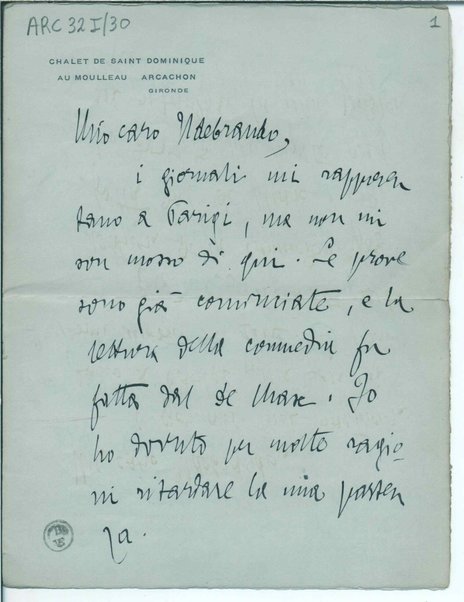 ARC 32 I/30
1
CHALET DE SAINT DOMINIQUE
AU MOULLEAU ARCACHON
GIRONDE
Mio caro Ildebrando,
i giornali mi rappresen
tano a Parigi, ma non mi
son mosso di qui. Le prove
sono già cominciate, e la
lettura della commedia fu
fatta dal de Max. Io
ho dovuto per molte ragio-
ni ritardare la mia parten
za.